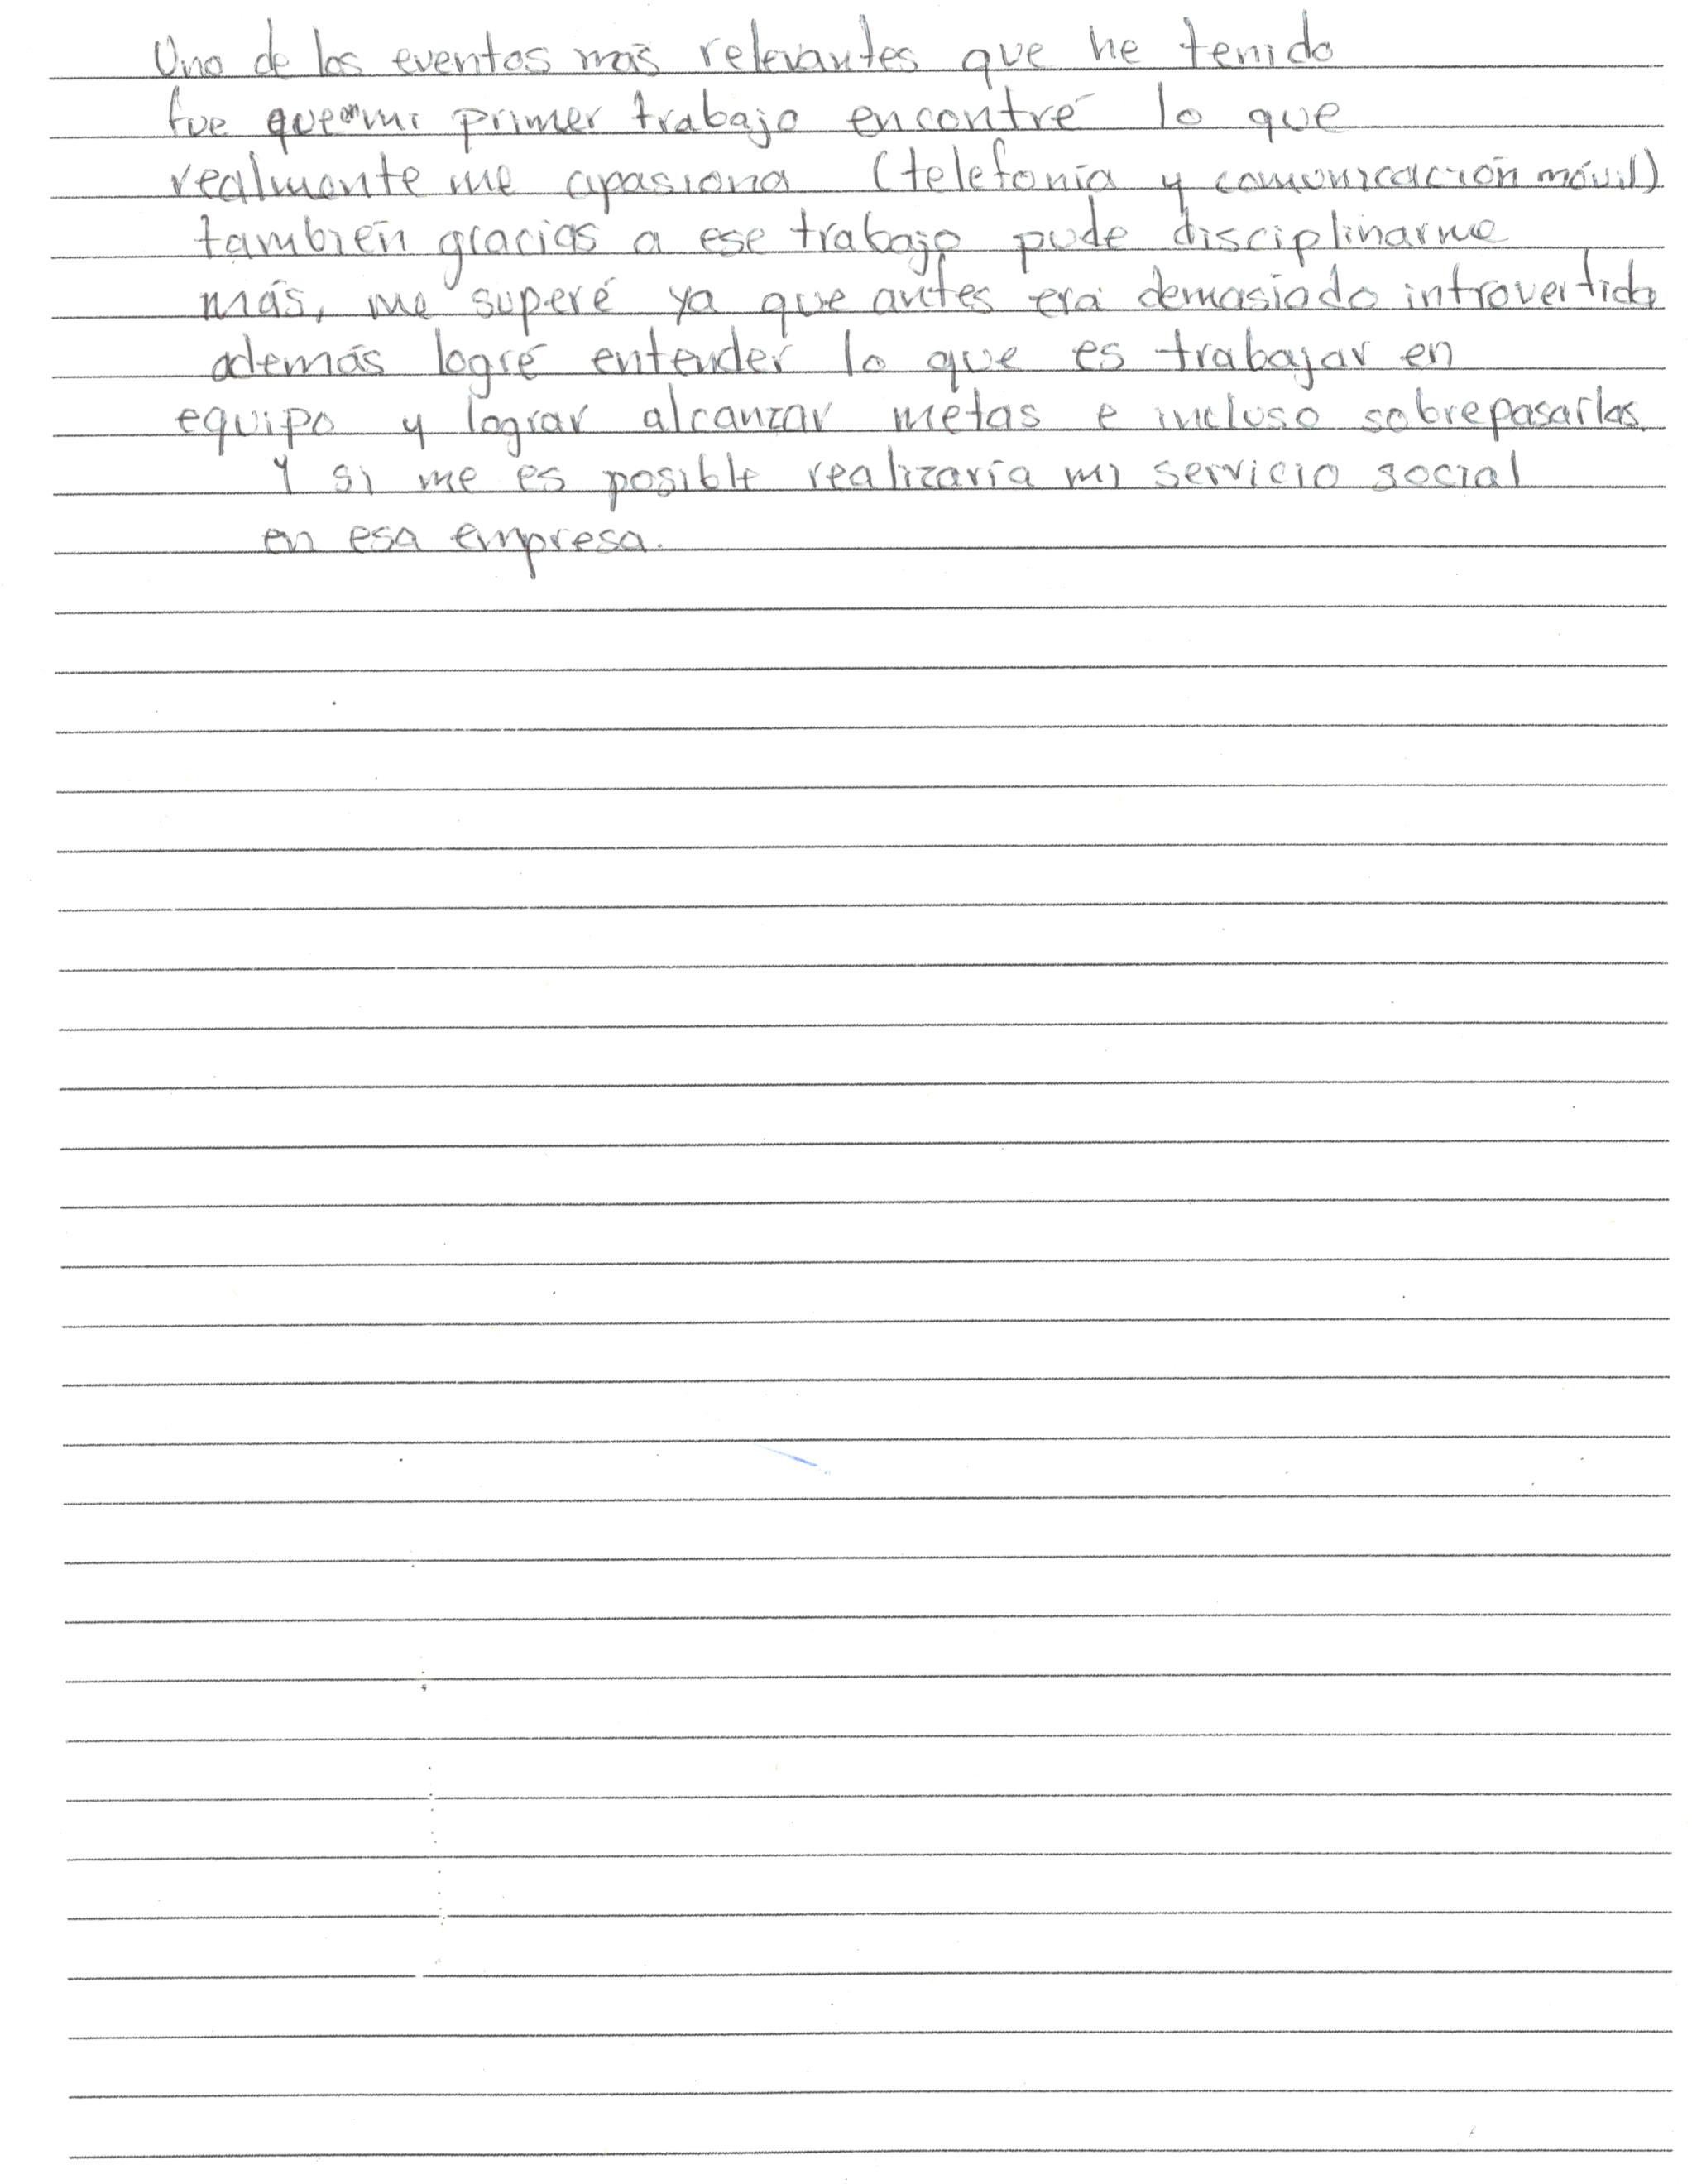 Uno de los eventos más relevantes que he tenido
fue que en mi primer trabajo encontré lo que
realmente me apasiona (telefonía y comunicación móvil)
también gracias a ese trabajo pude disciplinarme
más, me superé ya que antes era demasiado introvertido
además logré entender lo que es trabajar en
equipo y lograr alcanzar metas e incluso sobrepasarlas.
Y si me es posible realizaría mi servicio social
en esa empresa.